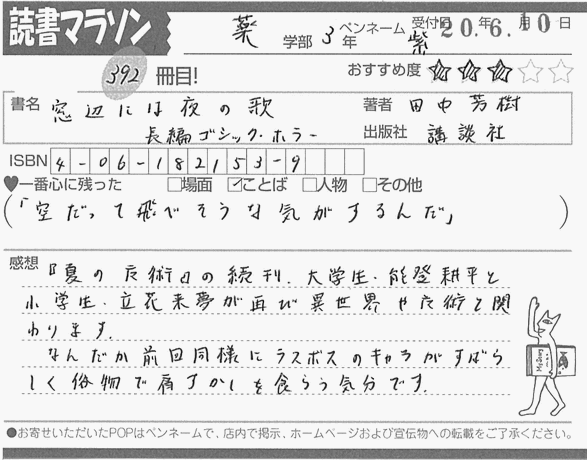 読書マラソン
薬 学部 3 年 ペンネーム 紫 受付日 20年6.月10日
392 冊目! おすすめ度 ★★★☆☆
書名 窓辺には夜の歌 著者 田中芳樹
長編ゴシック・ホラー 出版社 講談社
ISBN 4-06-182153-9
♥一番心に残った □場面 ☑ことば □人物 □その他
(「空だって飛べそうな気がするんだ」)
感想 『夏の魔術』の続刊。大学生・能登耕平と
小学生・立花来夢が再び異世界や魔術と関
わります。
なんだか前回同様にラスボスのキャラがすばら
しく俗物で肩すかしを食らう気分です。
Mystery
●お寄せいただいたPOPはペンネームで、店内で掲示、ホームページおよび宣伝物への転載をご了承ください。